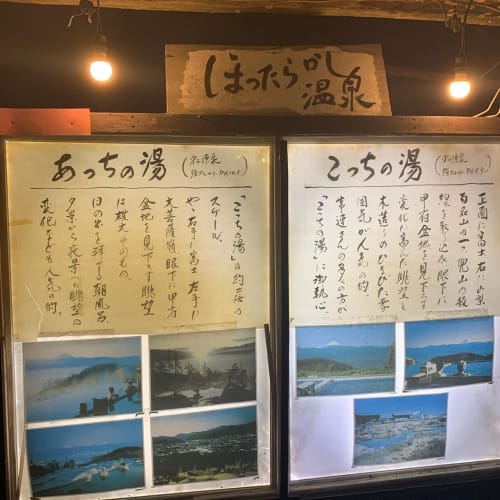 ほったらかし
温泉
あっちの湯
「こっちの湯」の約2倍の
スケール。
やゝ右手に富士 左手に
大菩薩嶺 眼下に甲府
盆地を見下ろす眺望
は雄大そのもの。
日の出を拝する朝風呂
夕景から夜景への眺望の
変化なども人気の的。
こっちの湯
正面に富士 右に山梨
百名山の一ツ、兜山の稜
線を取り込み 眼下に
甲府盆地を見下ろす
変化に富んだ眺望と
木造りのひなびた雰
囲気が人気の的。
常連さんの多くの方が
「こっちの湯」に御執心。